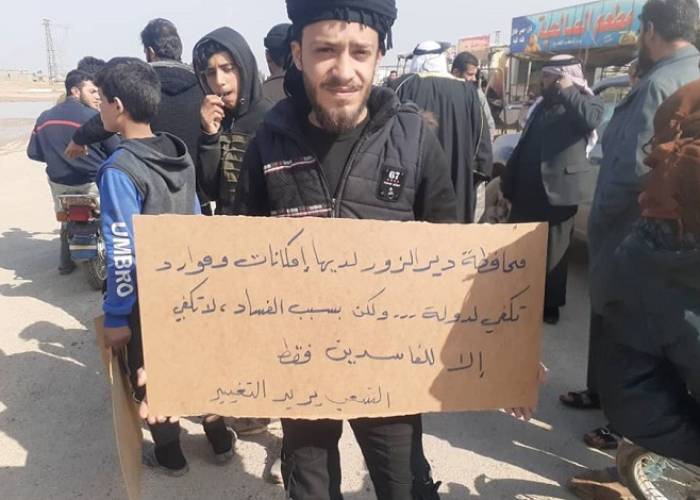 مطعم
محافظة ديرالزور لديها إمكانات وموارد
تكفي لدولة ... ولكن بسبب الفساد، لا تكفي
إلا للفاسدين فقط
الشعب يريد التغيير
UMBRO
67